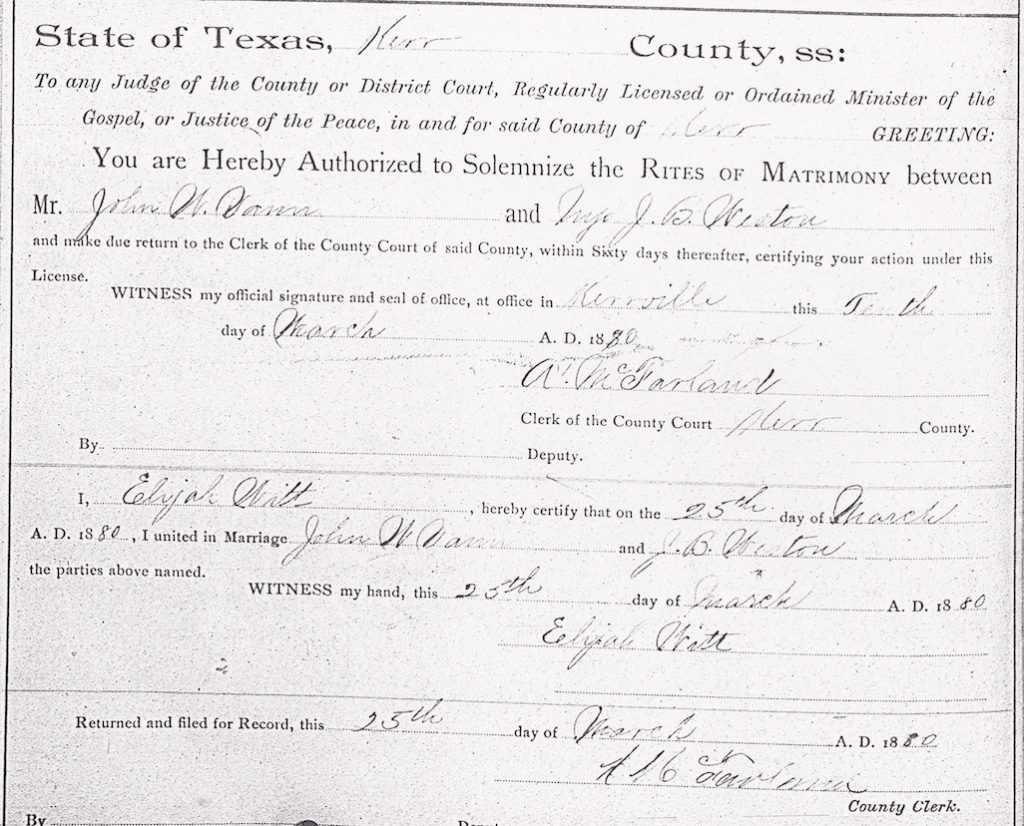 State of Texas, Kerr County, ss:
To any Judge of the County or District Court, Regularly Licensed or Ordained Minister of the
Gospel, or Justice of the Peace, in and for said County of Kerr GREETING:
You are Hereby Authorized to Solemnize the RITES OF MATRIMONY between
Mr. John W. Vann and J. B. Weston
and make due return to the Clerk of the County Court of said County, within Sixty days thereafter, certifying your action under this
License.
WITNESS my official signature and seal of office, at office in Kerrville this Tenth
day of March A. D. 1880
A. McFarland
Clerk of the County Court Kerr County.
By Deputy.
I, Elijah Witt, hereby certify that on the 25th day of March
A. D. 1880, I united in Marriage John W Vann and J. B. Weston
the parties above named.
WITNESS my hand, this 25th day of March A. D. 1880
Elijah Witt
Returned and filed for Record, this 25th day of March A. D. 1880
A Mc Farland
County Clerk.
By